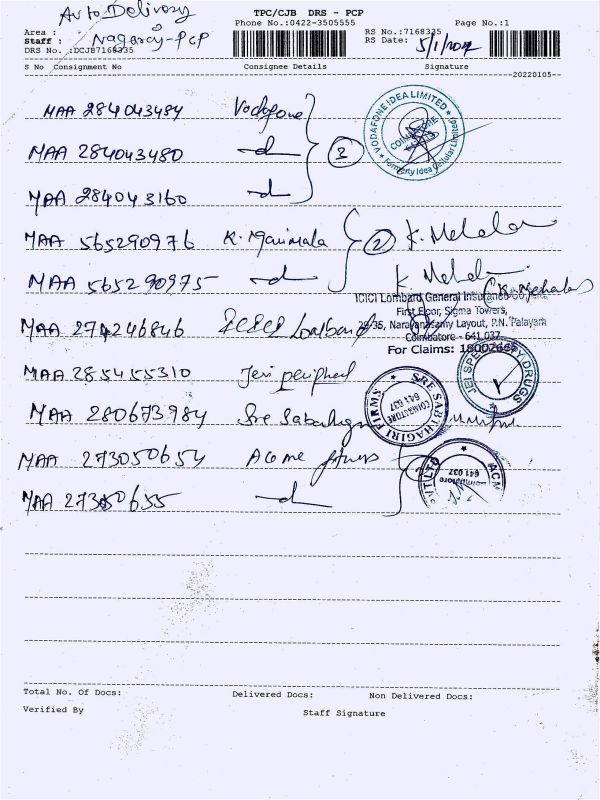 Auto Delivery
TPC/CJB DRS - PCP
Area :
Phone No.:0422-3505555
Page No.:1
Staff : Nagaraj-PCP
RS No.:7168335
DRS No. :DCJB7168335
RS Date: 5/1/2022
S No Consignment No Consignee Details Signature
--20220105--
MAA 284043484 Vodafone
VODAFONE IDEA LIMITED
COIMBATORE
Formerly Idea Cellular Limited
MAA 284043480 -d- 3
MAA 284043160 -d-
MAA 565290976 K. Manimala 2 K. Mehala
MAA 565290975 -d- K. Mehala
(K. Mehala)
ICICI Lombard General Insurance Co.
First Floor, Sigma Towers,
MAA 274246846 ICICI Lombard
29-35, Narayanasamy Layout, P.N. Palayam
Coimbatore - 641 037
For Claims: 18002666
MAA 285455310 Jeri peripheral
JEI SPECIALITY DRUGS
MAA 280673984 Sre Sabahagiri
SRE SABTHAGIRI FIRMS
COIMBATORE
641 037
MAA 273050654 Acme fitness
ACM
VT LTD
Coimbatore
641 037
MAA 273050655 -d-
Total No. Of Docs: Delivered Docs: Non Delivered Docs:
Verified By Staff Signature